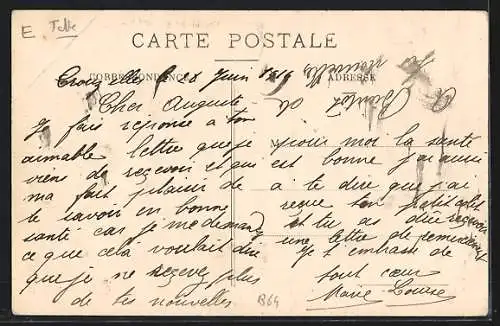 E Tolbe
CARTE POSTALE
CORRESPONDANCE
ADRESSE
le 28 Juin 1919
Cher Auguste
Je fais réponse a ton
aimable lettre que je
viens de reçevoir et qui
ma fait plaisir de
te savoir en bonne
santé car je me demand
ce que celà voulait dire
que je ne reçevez plus
de tes nouvelles
pour moi la santé
est bonne j'ai aussi
a te dire que j'ai
reçue ton petit colis
et tu as du reçevoir
une lettre de remerciment
Je t'embrasse de
tout cœur
Marie Louise
B64